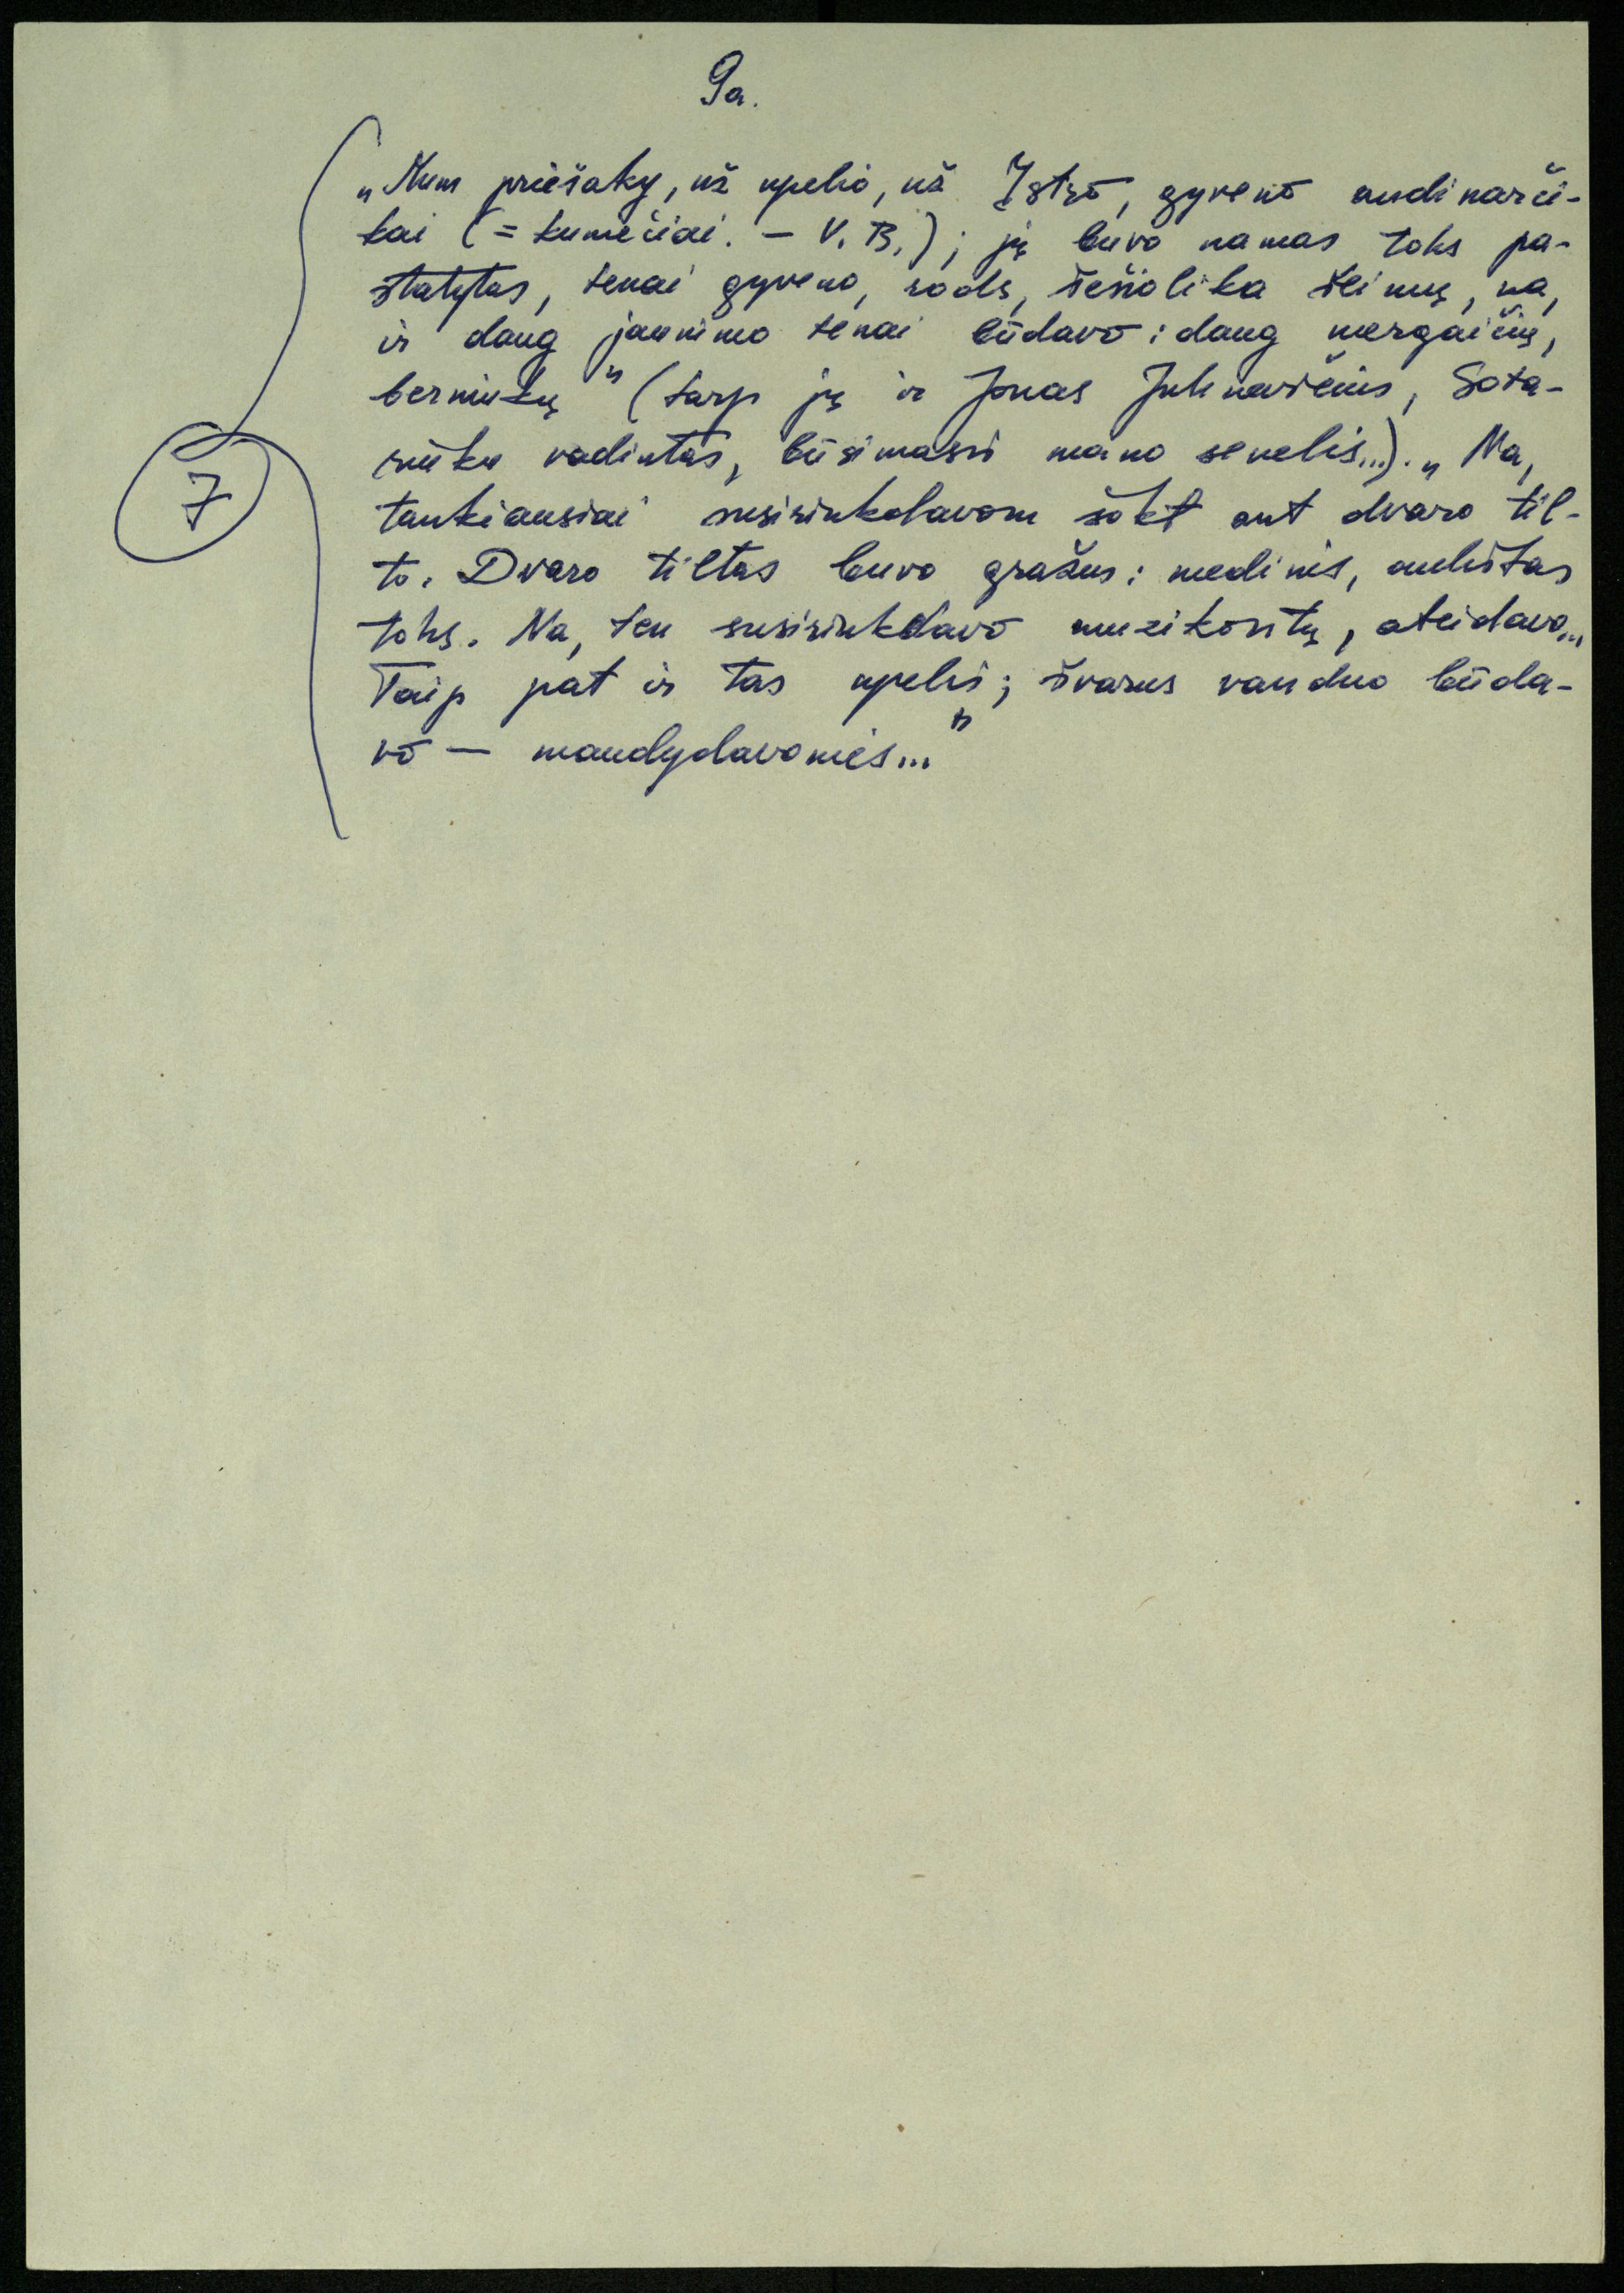 9a.
„Mum priešaky, už upelio, už Įstro, gyveno audinarči-
kai (= kumečiai. – V. B.); jų buvo namas toks pa-
statytas, tenai gyveno, rods, šešiolika šeimų, na,
ir daug jaunimo tenai būdavo: daug mergaičių,
berniukų” (tarp jų ir Jonas Juknevičius,
vadintas, būsimasis mano senelis...). „Na,
7
tankiausiai susirinkdavom šokt ant dvaro til-
to. Dvaro tiltas buvo gražus: medinis, aukštas
toks. Na, ten susirinkdavo muzikontų, ateidavo...
Taip pat ir tas upelis; švarus vanduo būda-
vo – maudydavomės...”